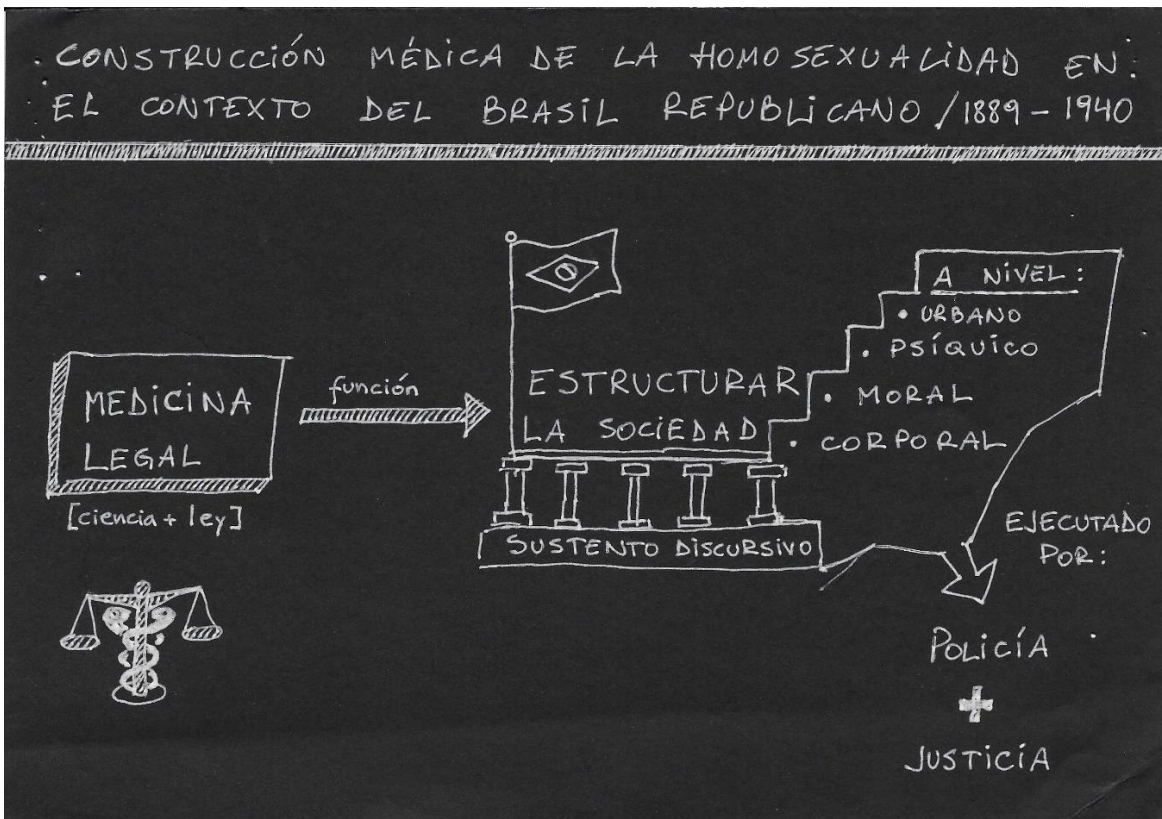 CONSTRUCCIÓN MÉDICA DE LA HOMOSEXUALIDAD EN:
EL CONTEXTO DEL BRASIL REPUBLICANO / 1889 - 1940
MEDICINA
LEGAL
[ciencia + ley]
función
ESTRUCTURAR
LA SOCIEDAD
SUSTENTO DISCURSIVO
A NIVEL:
• URBANO
• PSÍQUICO
• MORAL
• CORPORAL
EJECUTADO
POR:
POLICÍA
+
JUSTICIA